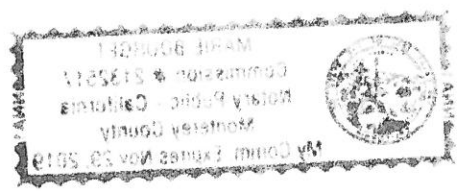 MARIE BOURGET
Commission # 2132517
Notary Public - California
Monterey County
My Comm. Expires Nov 29, 2019